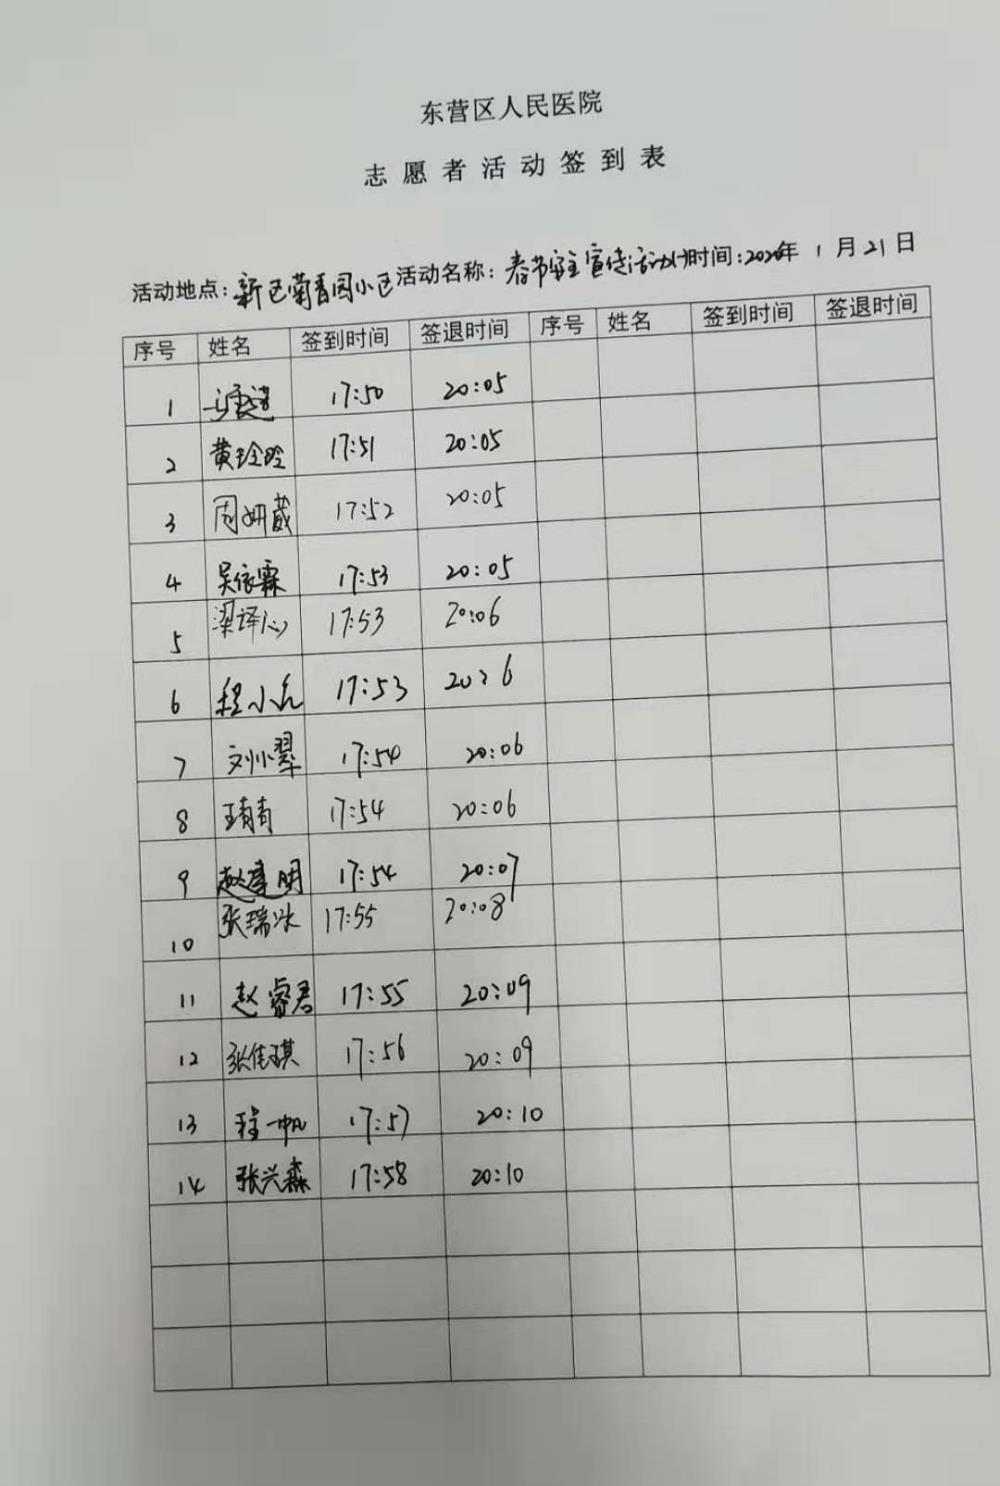 东营区人民医院
志愿者活动签到表
活动地点:新区菊香园小区 活动名称:春节 宣传活动 时间:2020年 1月21日
序号 姓名 签到时间 签退时间 序号 姓名 签到时间 签退时间
1 17:50 20:05
2 黄玲玲 17:51 20:05
3 周妍葳 17:52 20:05
4 吴依霖 17:53 20:05
5 梁译心 17:53 20:06
6 程小 17:53 20:6
7 刘小翠 17:54 20:06
8 17:54 20:06
9 赵建明 17:54 20:07
10 张瑞冰 17:55 20:08
11 赵睿君 17:55 20:09
12 张佳琪 17:56 20:09
13 程一帆 17:57 20:10
14 张兴森 17:58 20:10